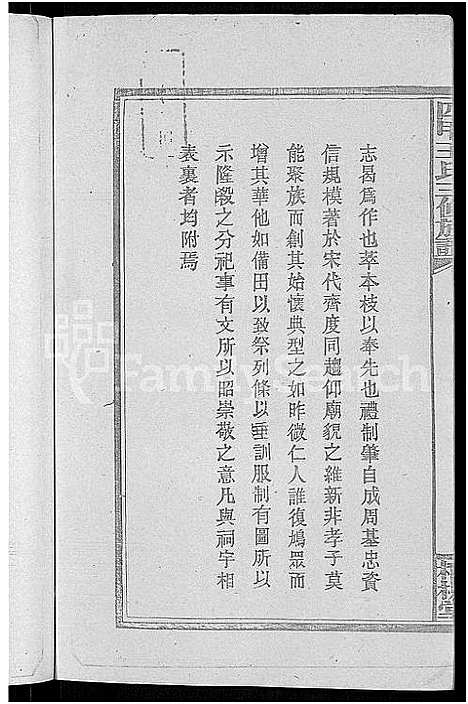 志曷為作也萃本枝以奉先也禮制肇自成周基忠資
信規模著於宋代齊度同趨仰廟貌之維新非孝子莫
能聚族而創其始懷典型之如昨微仁人誰復鳩眾而
增其華他如備田以致祭列條以垂訓服制有圖所以
示隆殺之分祀事有文所以昭崇敬之意凡與祠宇相
表裏者均附焉
王氏三修族譜
FamilySearch